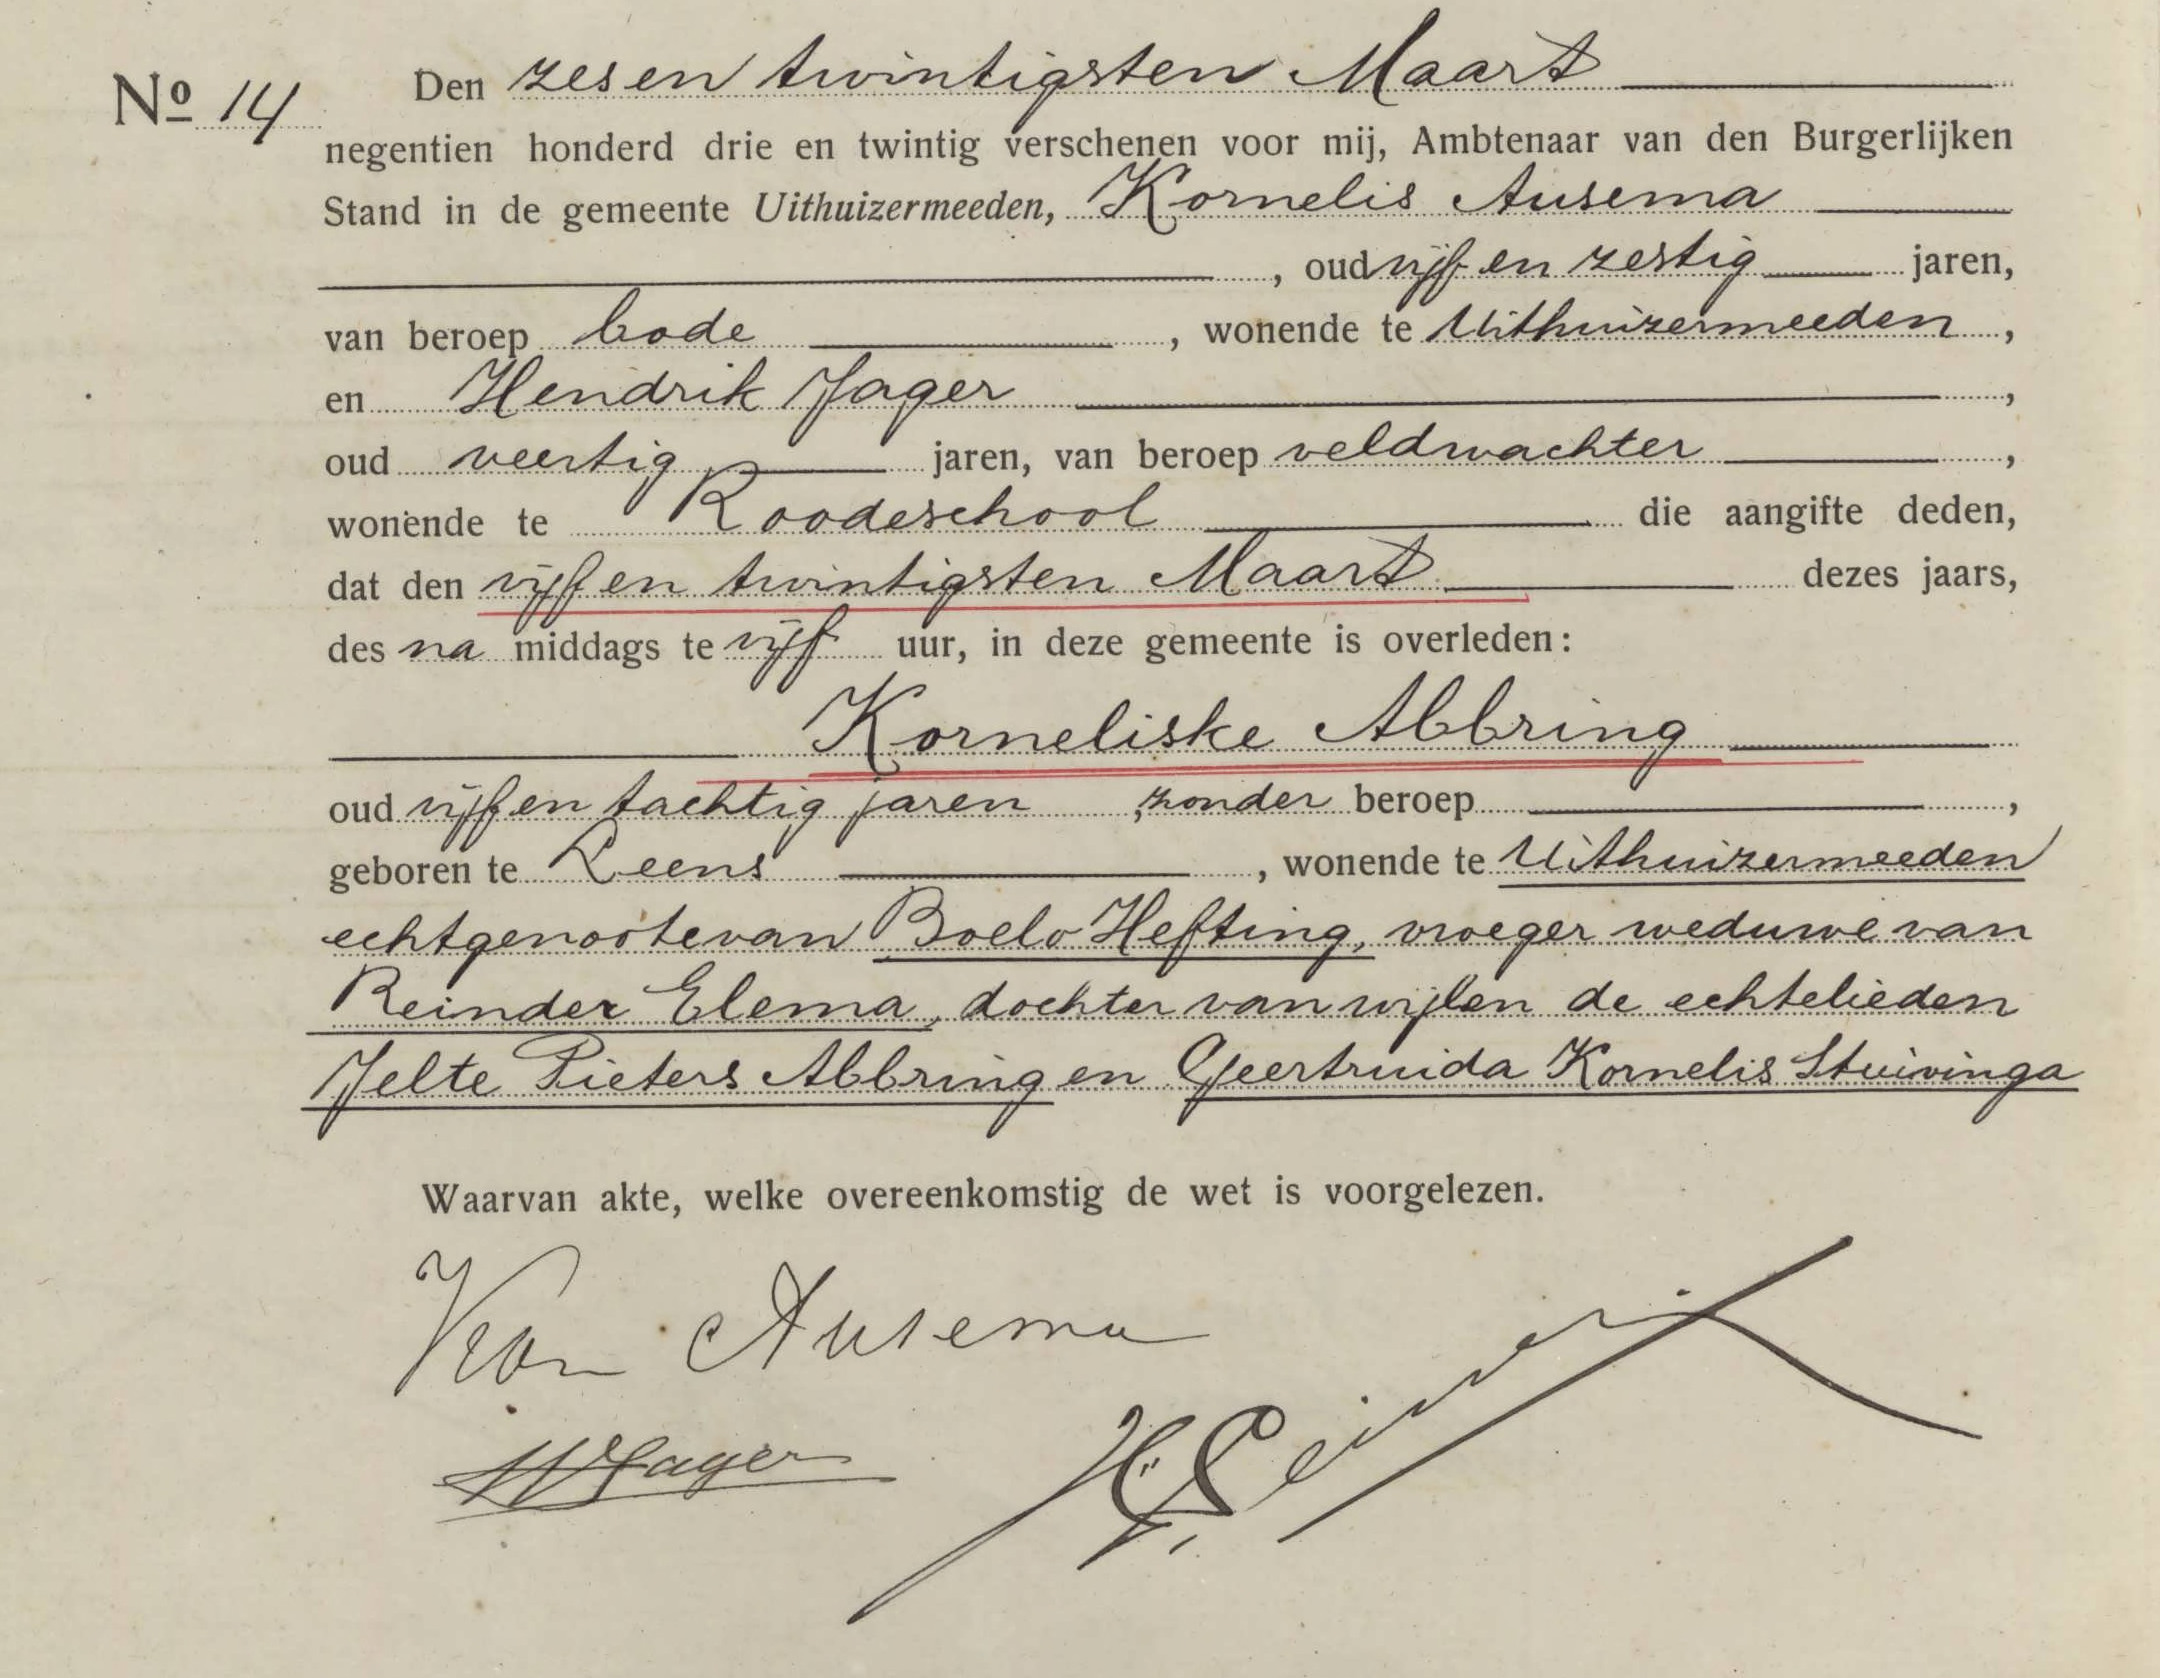 Nº 14 Den zes en twintigsten Maart
negentien honderd drie en twintig verschenen voor mij, Ambtenaar van den Burgerlijken
Stand in de gemeente Uithuizermeeden, Kornelis Ausema
, oud vijf en zestig jaren,
van beroep bode, wonende te Uithuizermeeden,
en Hendrik Jager,
oud veertig jaren, van beroep veldwachter,
wonende te Roodeschool die aangifte deden,
dat den vijf en twintigsten Maart dezes jaars,
des na middags te vijf uur, in deze gemeente is overleden:
Korneliske Abbring
oud vijf en tachtig jaren, zonder beroep,
geboren te Leens, wonende te Uithuizermeeden
echtgenoote van Boelo Hefting, vroeger weduwe van
Reinder Elema, dochter van wijlen de echtelieden
Jelte Pieters Abbring en Geertruida Kornelis Stuivinga
Waarvan akte, welke overeenkomstig de wet is voorgelezen.
Kor Ausema
HJager